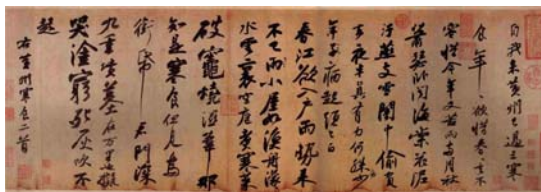 自我來黃州已過三寒
食年〻欲惜春〻去不
容惜今年又苦雨兩月秋
蕭瑟卧聞海棠花泥
汙燕支雪闇中偷負
去夜半真有力何殊少
年子病起頭已白
春江欲入戶雨勢來
不已雨小屋如漁舟濛〻
水雲裏空庖煮寒菜
破竈燒濕葦那
知是寒食但見烏
銜帋君門深
九重墳墓在万里也擬
哭塗窮死灰吹不
起
右黃州寒食二首